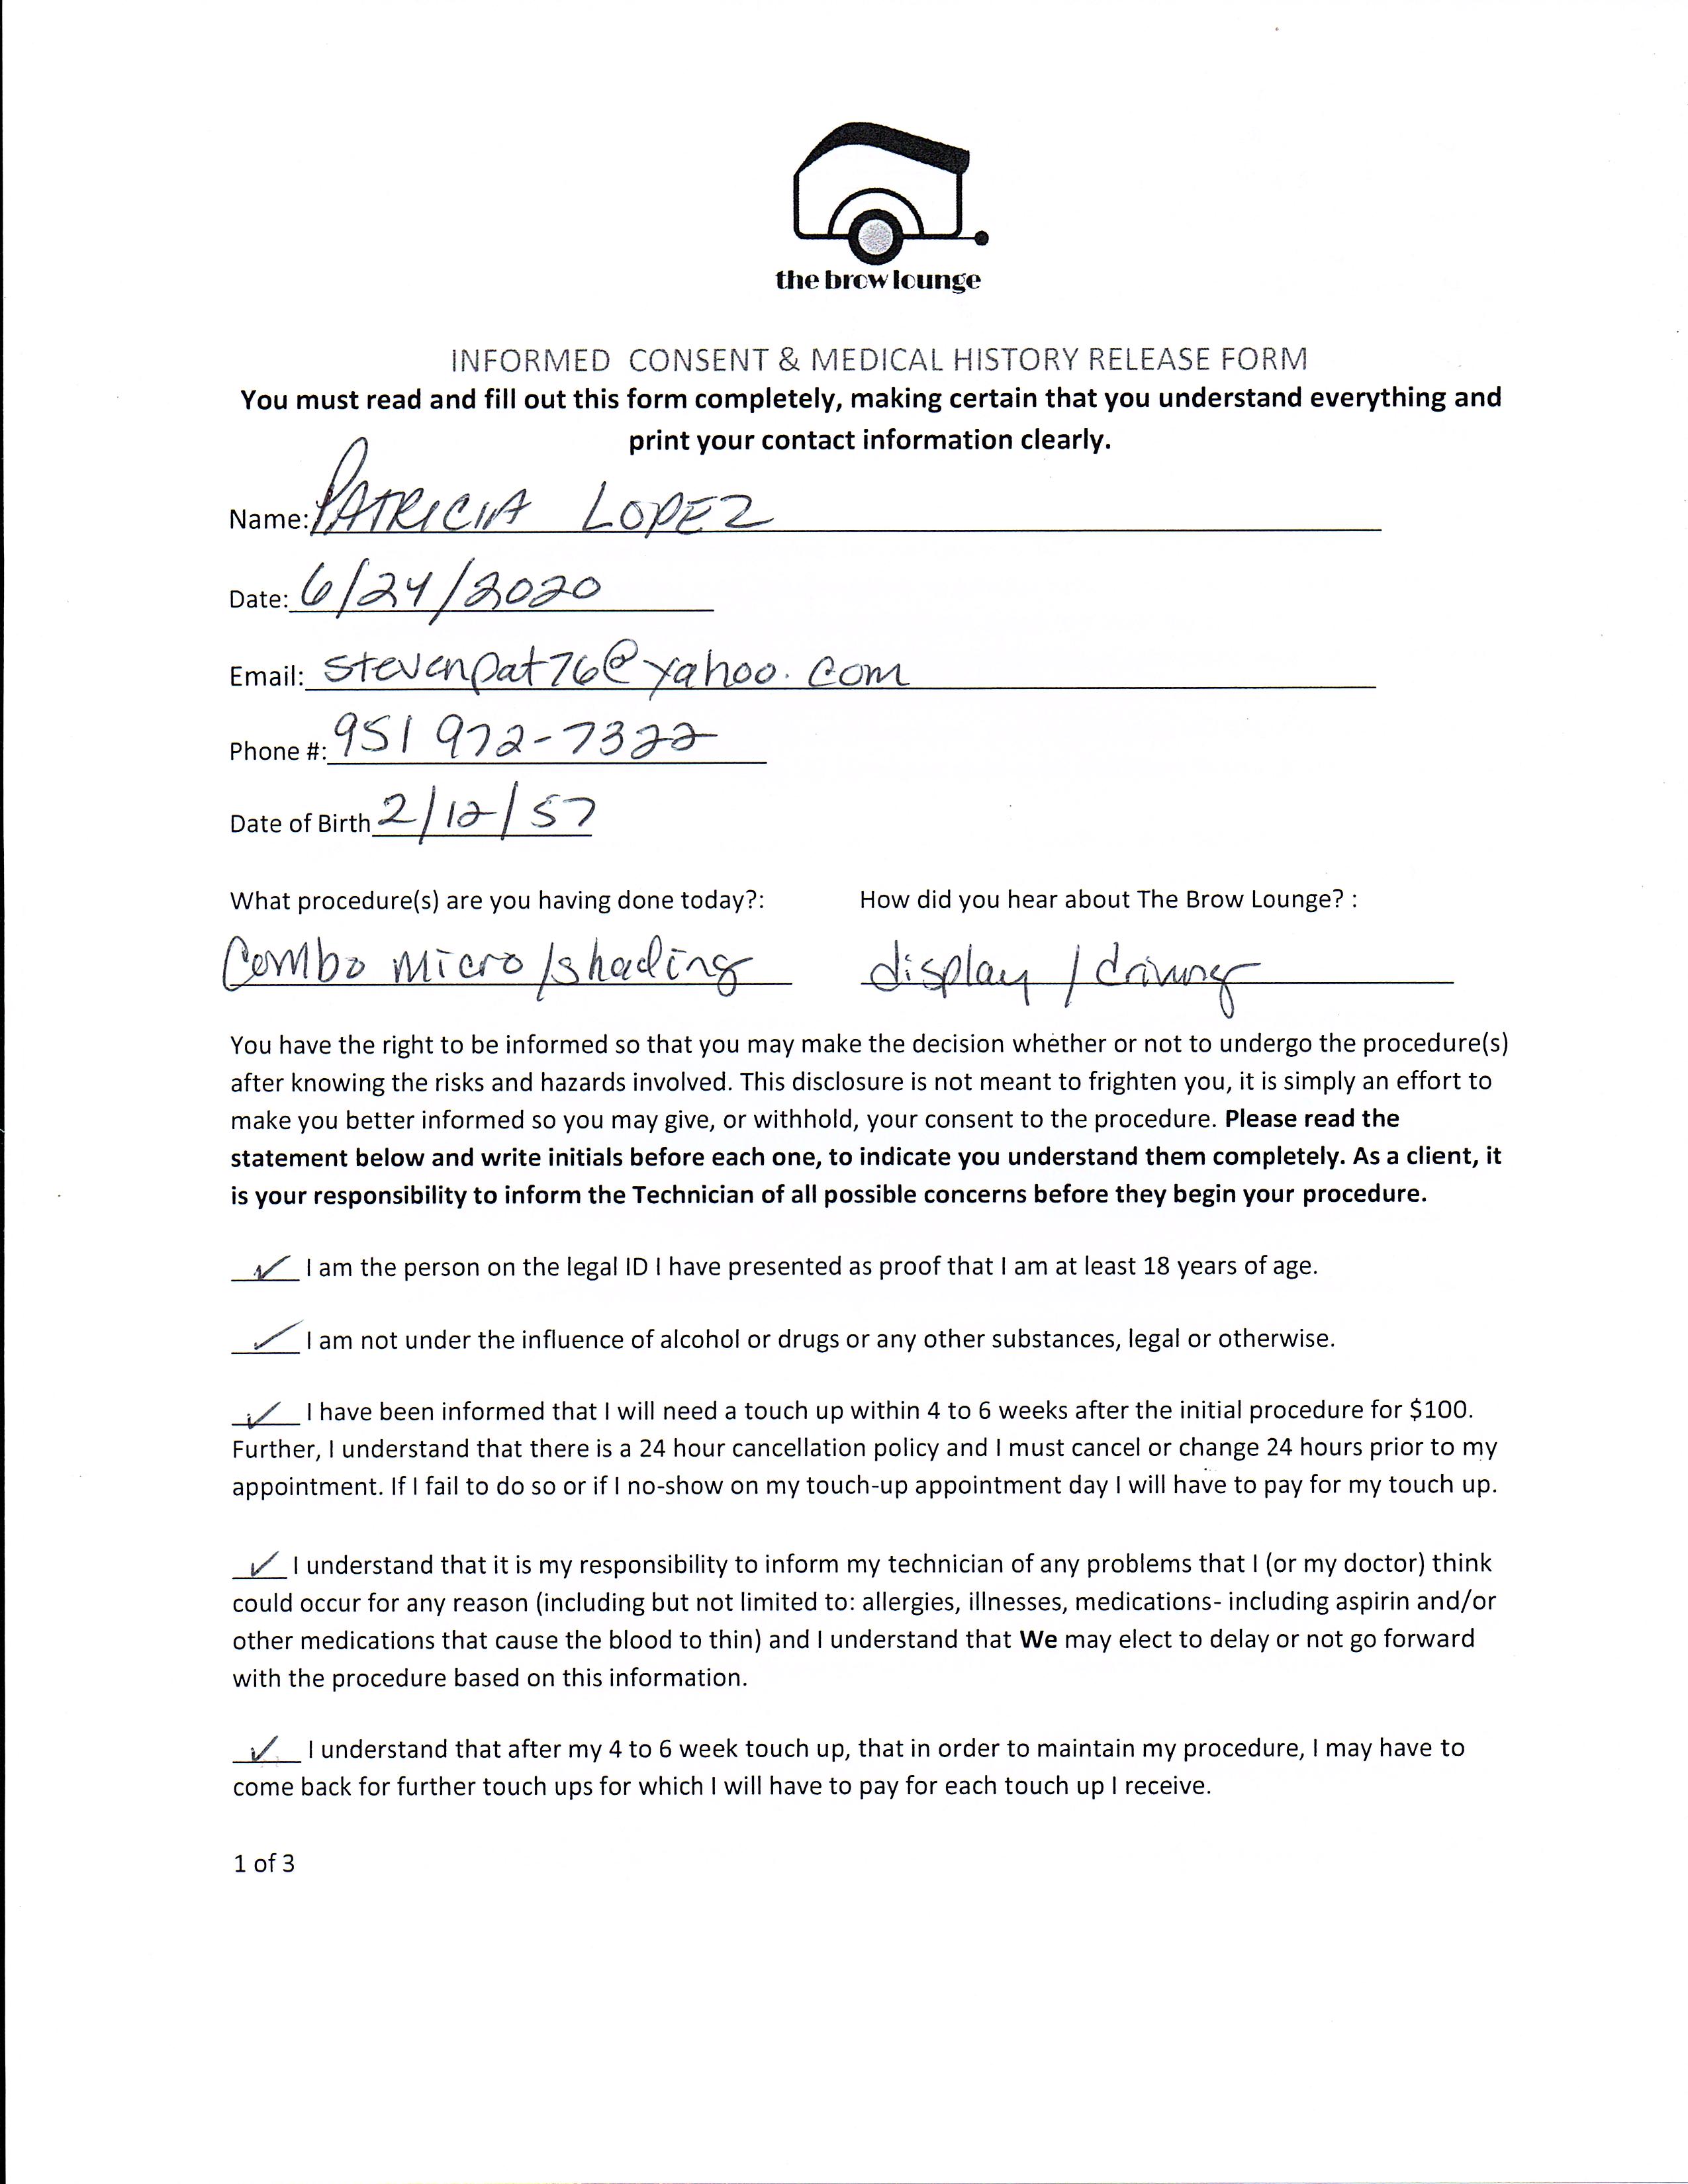 the brow lounge
INFORMED CONSENT & MEDICAL HISTORY RELEASE FORM
You must read and fill out this form completely, making certain that you understand everything and
print your contact information clearly.
Name: PATRICIA LOPEZ
Date: 6/24/2020
Email: stevenpat76@yahoo.com
Phone #: 951 972-7322
Date of Birth 2/12/57
What procedure(s) are you having done today?: How did you hear about The Brow Lounge? :
Combo micro/shading display / driving
You have the right to be informed so that you may make the decision whether or not to undergo the procedure(s)
after knowing the risks and hazards involved. This disclosure is not meant to frighten you, it is simply an effort to
make you better informed so you may give, or withhold, your consent to the procedure. Please read the
statement below and write initials before each one, to indicate you understand them completely. As a client, it
is your responsibility to inform the Technician of all possible concerns before they begin your procedure.
✓ I am the person on the legal ID I have presented as proof that I am at least 18 years of age.
✓ I am not under the influence of alcohol or drugs or any other substances, legal or otherwise.
✓ I have been informed that I will need a touch up within 4 to 6 weeks after the initial procedure for $100.
Further, I understand that there is a 24 hour cancellation policy and I must cancel or change 24 hours prior to my
appointment. If I fail to do so or if I no-show on my touch-up appointment day I will have to pay for my touch up.
✓ I understand that it is my responsibility to inform my technician of any problems that I (or my doctor) think
could occur for any reason (including but not limited to: allergies, illnesses, medications- including aspirin and/or
other medications that cause the blood to thin) and I understand that We may elect to delay or not go forward
with the procedure based on this information.
✓ I understand that after my 4 to 6 week touch up, that in order to maintain my procedure, I may have to
come back for further touch ups for which I will have to pay for each touch up I receive.
1 of 3